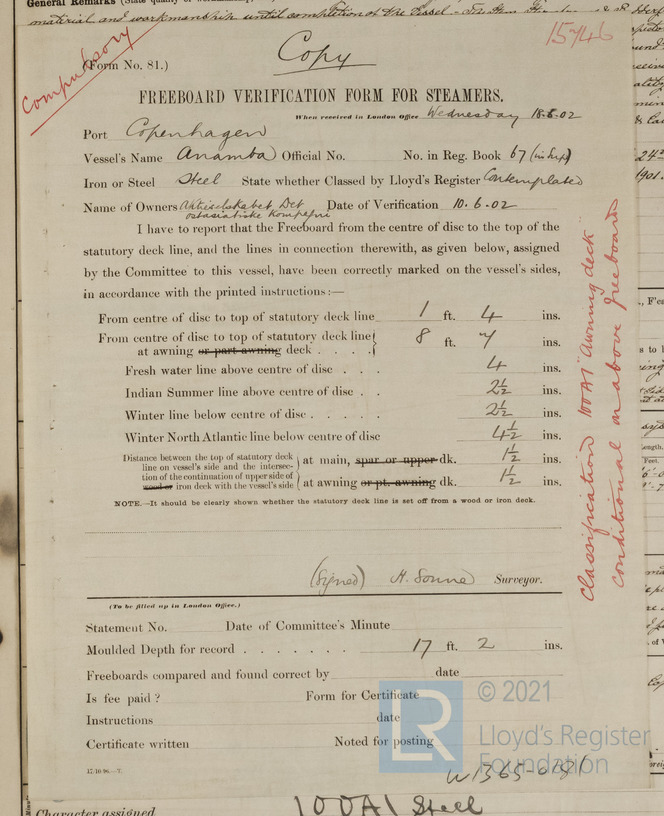 General Remarks (State quality of
material and workmanship until completion of the Vessel
15746
Compulsory
Copy
(Form No. 81.)
FREEBOARD VERIFICATION FORM FOR STEAMERS.
When received in London Office Wednesday 18.6.02
Port Copenhagen
Vessel's Name Anamba Official No. No. in Reg. Book 67 (in Sup)
Iron or Steel Steel State whether Classed by Lloyd's Register Contemplated
Name of Owners Aktieselskabet Det Date of Verification 10.6.02
ostasiatiske Kompagni
I have to report that the Freeboard from the centre of disc to the top of the
statutory deck line, and the lines in connection therewith, as given below, assigned
by the Committee to this vessel, have been correctly marked on the vessel's sides,
in accordance with the printed instructions:—
From centre of disc to top of statutory deck line 1 ft. 4 ins.
From centre of disc to top of statutory deck line
at awning or part awning deck . . . . 8 ft. 7 ins.
Fresh water line above centre of disc . . . 4 ins.
Indian Summer line above centre of disc . . 2½ ins.
Winter line below centre of disc . . . . . 2½ ins.
Winter North Atlantic line below centre of disc 4½ ins.
Distance between the top of statutory deck
line on vessel's side and the intersec-
tion of the continuation of upper side of
wood or iron deck with the vessel's side
at main, spar or upper dk. 1½ ins.
at awning or pt. awning dk. 1½ ins.
NOTE.—It should be clearly shown whether the statutory deck line is set off from a wood or iron deck.
(Signed) H. Sonne Surveyor.
(To be filled up in London Office.)
Statement No. Date of Committee's Minute
Moulded Depth for record . . . . . . . 17 ft. 2 ins.
Freeboards compared and found correct by date
Is fee paid? Form for Certificate
Instructions date
Certificate written Noted for posting
17/10/96.—T.
W1365-0191
Classification 100A1 Awning deck
conditional on above freeboard
LR
© 2021
Lloyd's Register
Foundation
Character assigned 100A1 Steel